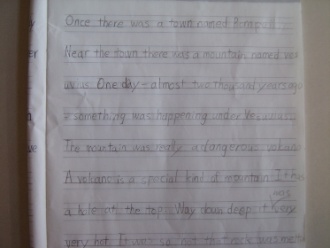 Once there was a town named
Near the town there was a mountain named
One day - almost two thousand years ago
something was happening under Vesuvius.
The mountain was really a dangerous
A volcano is a special kind of mountain. It has
a hole at the top. Way down deep, it was
very hot. It was so hot that rock